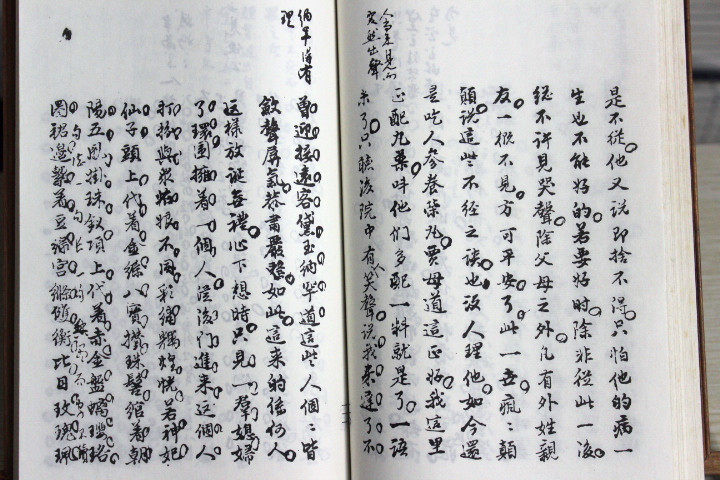 人尚未見而
突然出聲
是不從他又说即捨不得只怕他的病一
生也不能好的若要好時除非從此一後
總不許見哭聲除父母之外凡有外姓親
友一概不見方可平安了此一世瘋〻顛
顛說這些不經之談也沒人理他如今還
是吃人參養榮丸賈母道這正好我這里
正配丸藥呌他们多配一料就是了一語
未了只聽後院中有人笑聲說我來遲了不
理
曾迎接遠客黛玉纳罕道這些人個〻皆
歛聲屏氣恭肅嚴整如此這来的係何人
這樣放诞無禮心下想時只見一羣媳婦
了環圍擁着一個人從後门進来这個人
打扮與衆姑娘不同彩綉輝煌恍若神妃
仙子頭上代着金絲八寳攢珠髻綰着朝
陽五鳳掛珠釵項上代着赤金盤螭瓔珞
圈裙邊繫着豆綠宮絛雙衡比目玫瑰珮